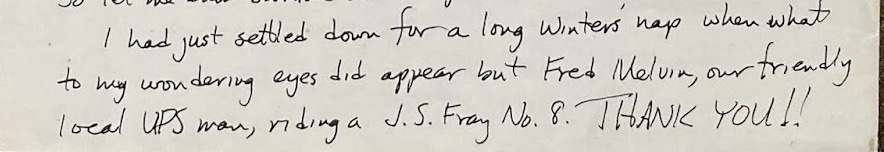 I had just settled down for a long Winters' nap when what
to my wondering eyes did appear but Fred Melvin, our friendly
local UPS man, riding a J.S. Fray No. 8. THANK YOU!!